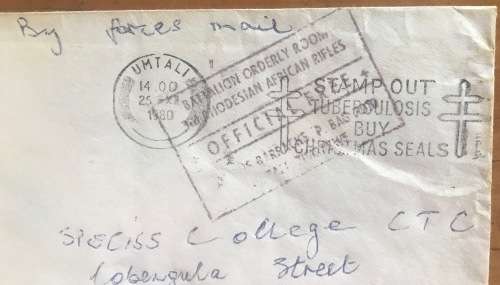 By forces mail
UMTALI
14 00
25 XI
1980
BATTALION ORDERLY ROOM
RHODESIAN AFRICAN RIFLES
OFFICIAL FREE
BARRACKS P. BAG
STAMP OUT
TUBERCULOSIS
BUY
CHRISTMAS SEALS
SPECISS College CTC
Lobengula Street